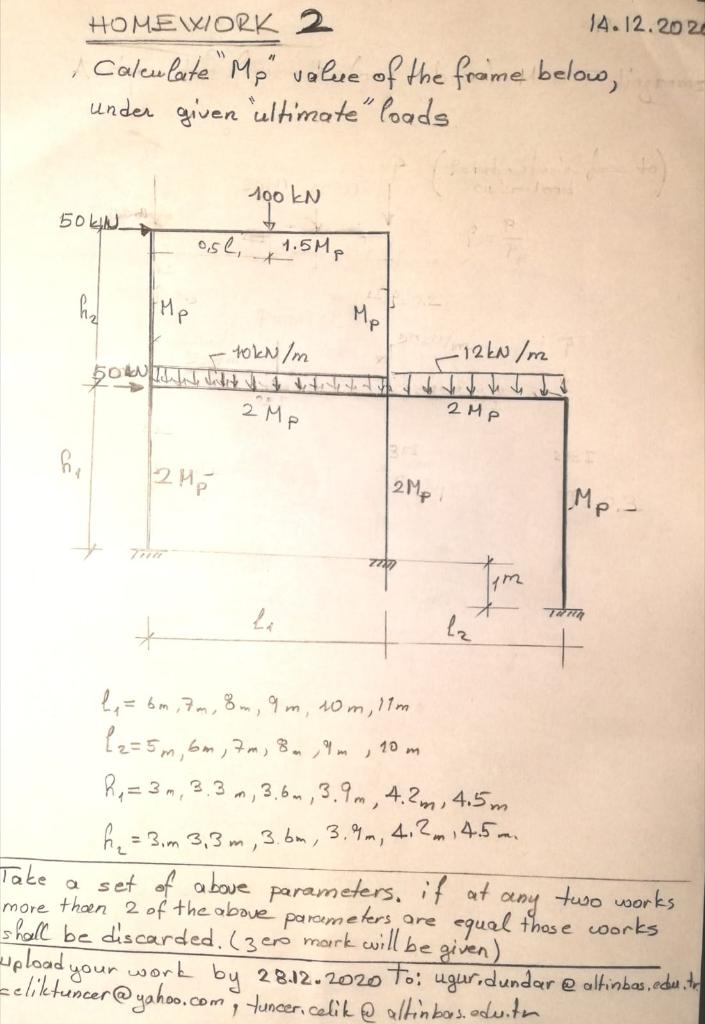 HOMEWORK 2
14.12.202
Calculate "Mp" value of the frame below,
under given "ultimate" loads
100 kN
50 kN
0,5l₁ 1.5Mp
h₂
Mp
Mp
10kN/m
12kN/m
50kN
2 Mp
2 Mp
h₁
2 Mp
2Mp
Mp
1m
l₁
l₂
l₁ = 6m, 7m, 8m, 9m, 10m, 11m
l₂=5m, 6m, 7m, 8m, 9m, 10m
h₁= 3m, 3.3m, 3.6m, 3.9m, 4.2m, 4.5m
h₂ = 3.m 3,3m, 3.6m, 3.9m, 4.2m, 4.5m.
Take a set of above parameters. if at any two works
more than 2 of the above parameters are equal those works
shall be discarded. (zero mark will be given)
upload your work by 28.12.2020 To: ugur.dundar@altinbas.edu.tr
celiktuncer@yahoo.com, tuncer.celik@altinbas.edu.tr